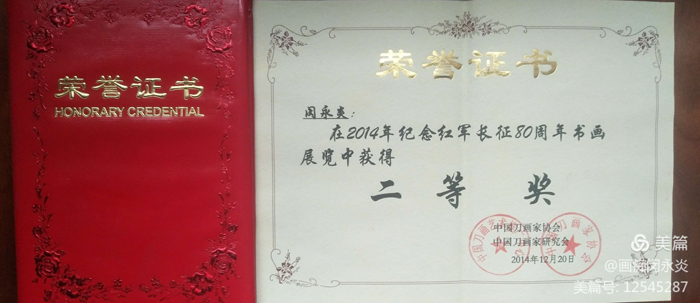 荣誉证书
HONORARY CREDENTIAL
荣誉证书
闵永炎：
在2014年纪念红军长征80周年书画
展览中获得
二等奖
中国刀画家协会
中国刀画家研究会
2014年12月20日
美篇
@画痴闵永炎
美篇号: 12545287